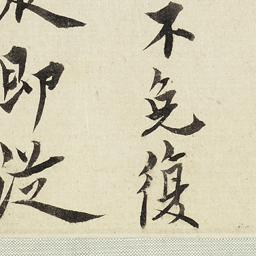 不免復
即從